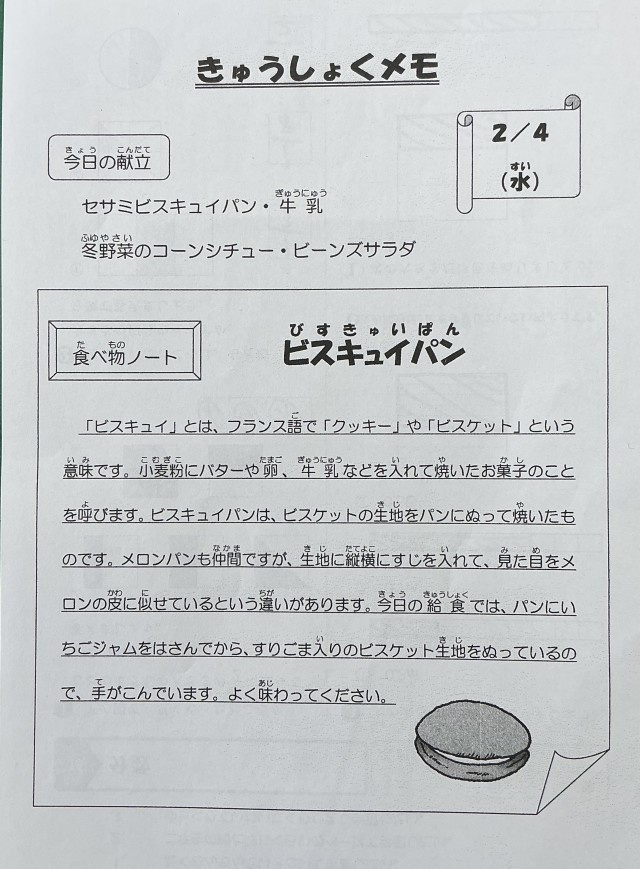 きゅうしょくメモ
2/4
(水)
今日の献立
セサミビスキュイパン・牛乳
冬野菜のコーンシチュー・ビーンズサラダ
食べ物ノート
びすきゅいぱん
ビスキュイパン
「ビスキュイ」とは、フランス語で「クッキー」や「ビスケット」という
意味です。小麦粉にバターや卵、牛乳などを入れて焼いたお菓子のこと
を呼びます。ビスキュイパンは、ビスケットの生地をパンにぬって焼いたも
のです。メロンパンも仲間ですが、生地に縦横にすじを入れて、見た目をメ
ロンの皮に似せているという違いがあります。今日の給食では、パンにい
ちごジャムをはさんでから、すりごま入りのビスケット生地をぬっているの
で、手がこんでいます。よく味わってください。